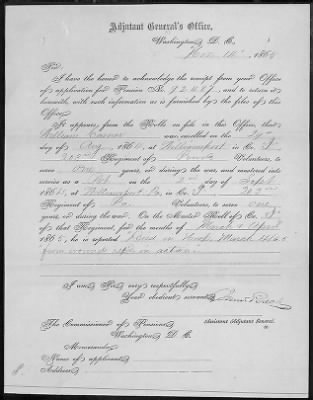 Adjutant General's Office,
Washington, D. C.,
186
Sir:
I have the honor to acknowledge the receipt from your Office
of application for Pension No. and to return it
herewith, with such information as is furnished by the files of this
Office.
It appears from the Rolls on file in this Office, that
William was enrolled on the
day of Aug, 1864, at Williamsport in Co.
Regiment of Penna Volunteers, to
serve One years, or during the war, and mustered into
service as a on the day of Sept,
1864, at Williamsport Pa, in Co.
Regiment of Volunteers, to serve one
years, or during the war. On the Muster Roll of Co.
of that Regiment, for the months of March & April
1865, he is reported "Died in March
from wounds in action"
I am, Sir, very respectfully,
Your obedient servant,
Assistant Adjutant General.
The Commissioner of Pensions,
Washington, D. C.
Memoranda:
Name of applicant,
Address,